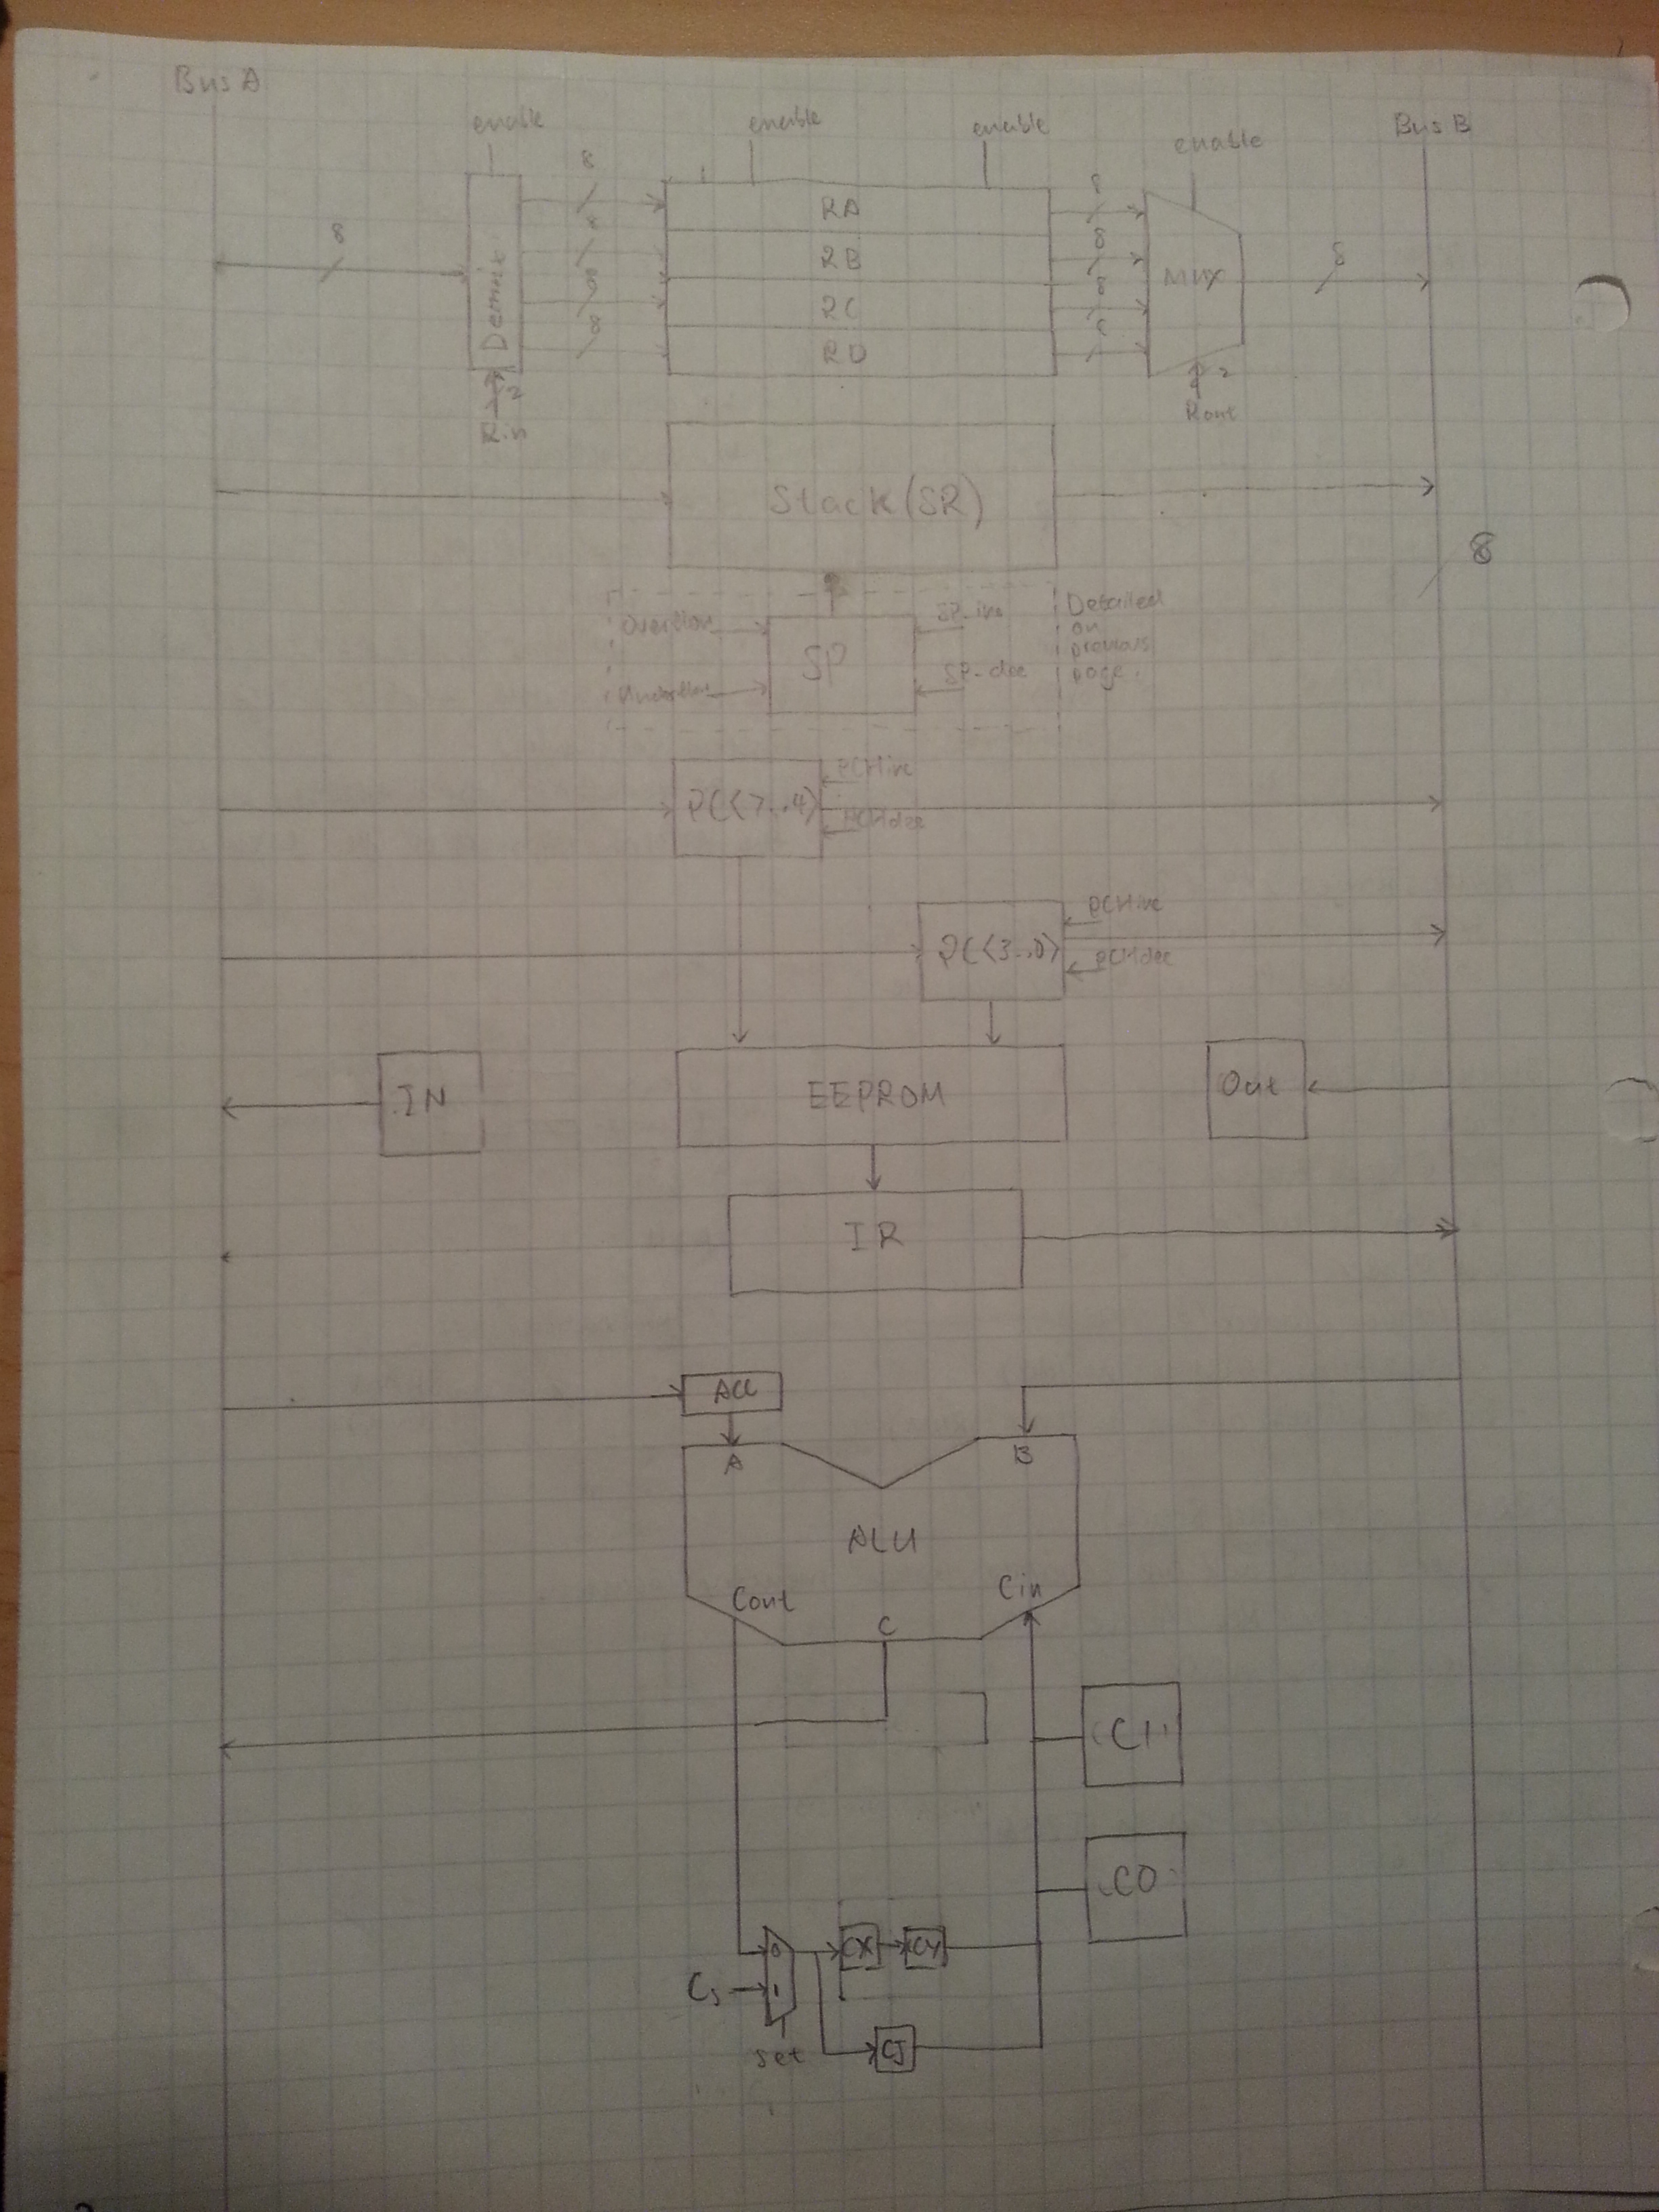 Bus A
enable
enable
enable
enable
Bus B
8
8
8
8
8
8
8
8
8
8
Demux
RA
RB
RC
RD
MUX
2
Rin
2
Rout
Stack (SR)
8
Overflow
Underflow
SP
SP-inc
SP-dec
Detailed
on
previous
page.
PC<7..4>
PCHinc
PCHdec
PC<3..0>
PCHinc
PCHdec
IN
EEPROM
Out
IR
Acc
A
B
ALU
Cout
Cin
C
C1
C0
0
CX
CY
Cs
1
set
CJ